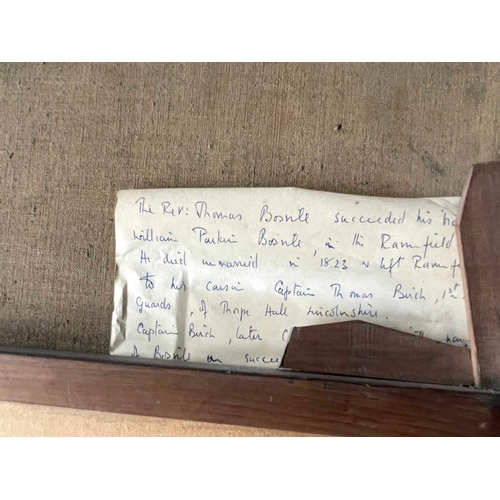 The Rev: Thomas Bosvile succeeded his
William Parkin Bosvile, in the Ravenfield
He died unmarried in 1823 & left Ravenf
to his cousin Captain Thomas Birch, 1st
Guards, of Thorpe Hall Lincolnshire.
Captain Birch, later
of Bosvile on succe